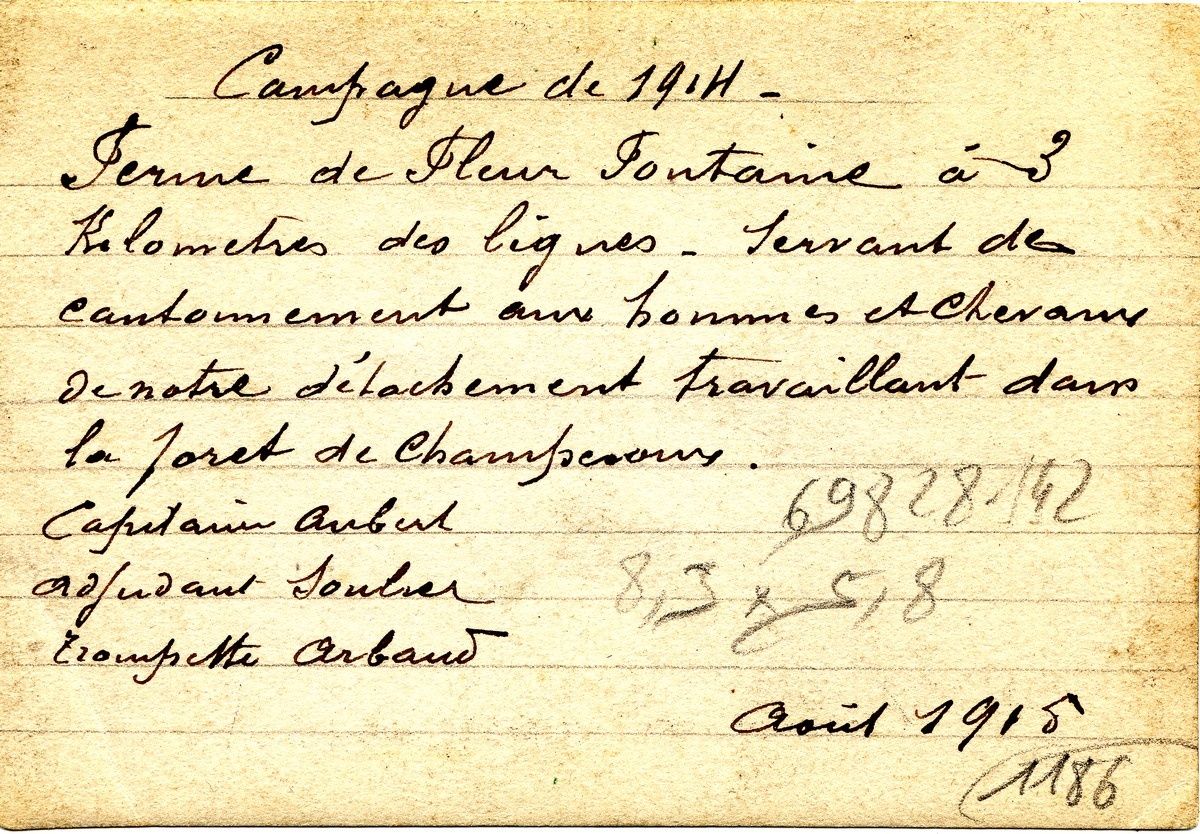 Campagne de 1914 -
Ferme de Fleur Fontaine à 3
Kilometres des lignes - Servant de
cantonnement aux hommes et chevaux
de notre détachement travaillant dans
la foret de Champenoux.
Capitaine Aubert
69828.142
adjudant
8,3 x 5,8
trompette Arbaud
Août 1915
1186